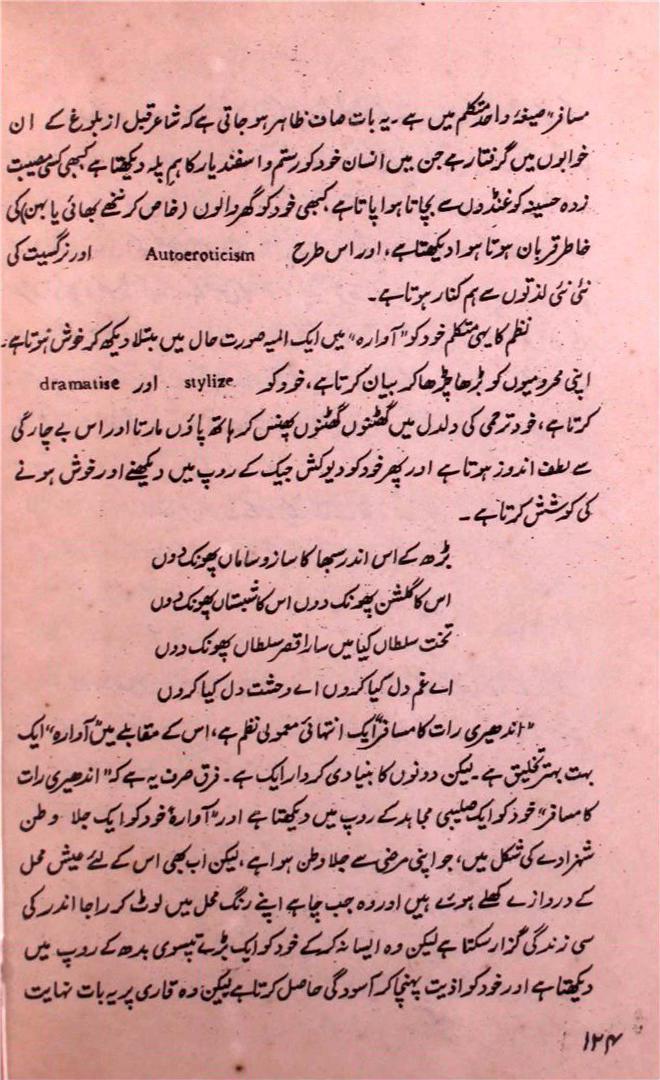 مسافر" صیغۂ واحد متکلم میں ہے۔ یہ بات صاف ظاہر ہو جاتی ہے کہ شاعر قبل از بلوغ کے ان
خوابوں میں گرفتار ہے جن میں انسان خود کو رستم و اسفندیار کا ہم پلہ دیکھتا ہے کبھی کسی مصیبت
زدہ حسینہ کو غنڈوں سے بچاتا ہوا پاتا ہے، کبھی خود کو گھر والوں (خاص کر ننھے بھائی یا بہن) کی
خاطر قربان ہوتا ہوا دیکھتا ہے، اور اس طرح Autoeroticism اور نرگسیت کی
نئی نئی لذتوں سے ہم کنار ہوتا ہے۔
نظم کا یہی متکلم خود کو "آوارہ" میں ایک المیہ صورت حال میں مبتلا دیکھ کر خوش ہوتا ہے۔
اپنی محرومیوں کو بڑھا چڑھا کر بیان کرتا ہے، خود کو stylize اور dramatise
کرتا ہے، خود ترحمی کی دلدل میں گھٹنوں گھٹنوں پھنس کر ہاتھ پاؤں مارتا اور اس بے چارگی
سے لطف اندوز ہوتا ہے اور پھر خود کو دیو کش جیک کے روپ میں دیکھنے اور خوش ہونے
کی کوشش کرتا ہے۔
بڑھ کے اس اندر سبھا کا ساز و ساماں پھونک دوں
اس کا گلشن پھونک دوں اس کا شبستاں پھونک دوں
تخت سلطاں کیا میں سارا قصر سلطاں پھونک دوں
اے غم دل کیا کروں اے وحشت دل کیا کروں
"اندھیری رات کا مسافر" ایک انتہائی معمولی نظم ہے، اس کے مقابلے میں "آوارہ" ایک
بہت بہتر تخلیق ہے۔ لیکن دونوں کا بنیادی کردار ایک ہے۔ فرق صرف یہ ہے کہ "اندھیری رات
کا مسافر" خود کو ایک صلیبی مجاہد کے روپ میں دیکھتا ہے اور "آوارہ" خود کو ایک جلا وطن
شہزادے کی شکل میں، جو اپنی مرضی سے جلا وطن ہوا ہے، لیکن اب بھی اس کے لئے عیش محل
کے دروازے کھلے ہوئے ہیں اور وہ جب چاہے اپنے رنگ محل میں لوٹ کر راجا اندر کی
سی زندگی گزار سکتا ہے لیکن وہ ایسا نہ کر کے خود کو ایک بڑے تپسوی بدھ کے روپ میں
دیکھتا ہے اور خود کو اذیت پہنچا کر آسودگی حاصل کرتا ہے لیکن وہ قاری پر یہ بات نہایت
۱۲۴